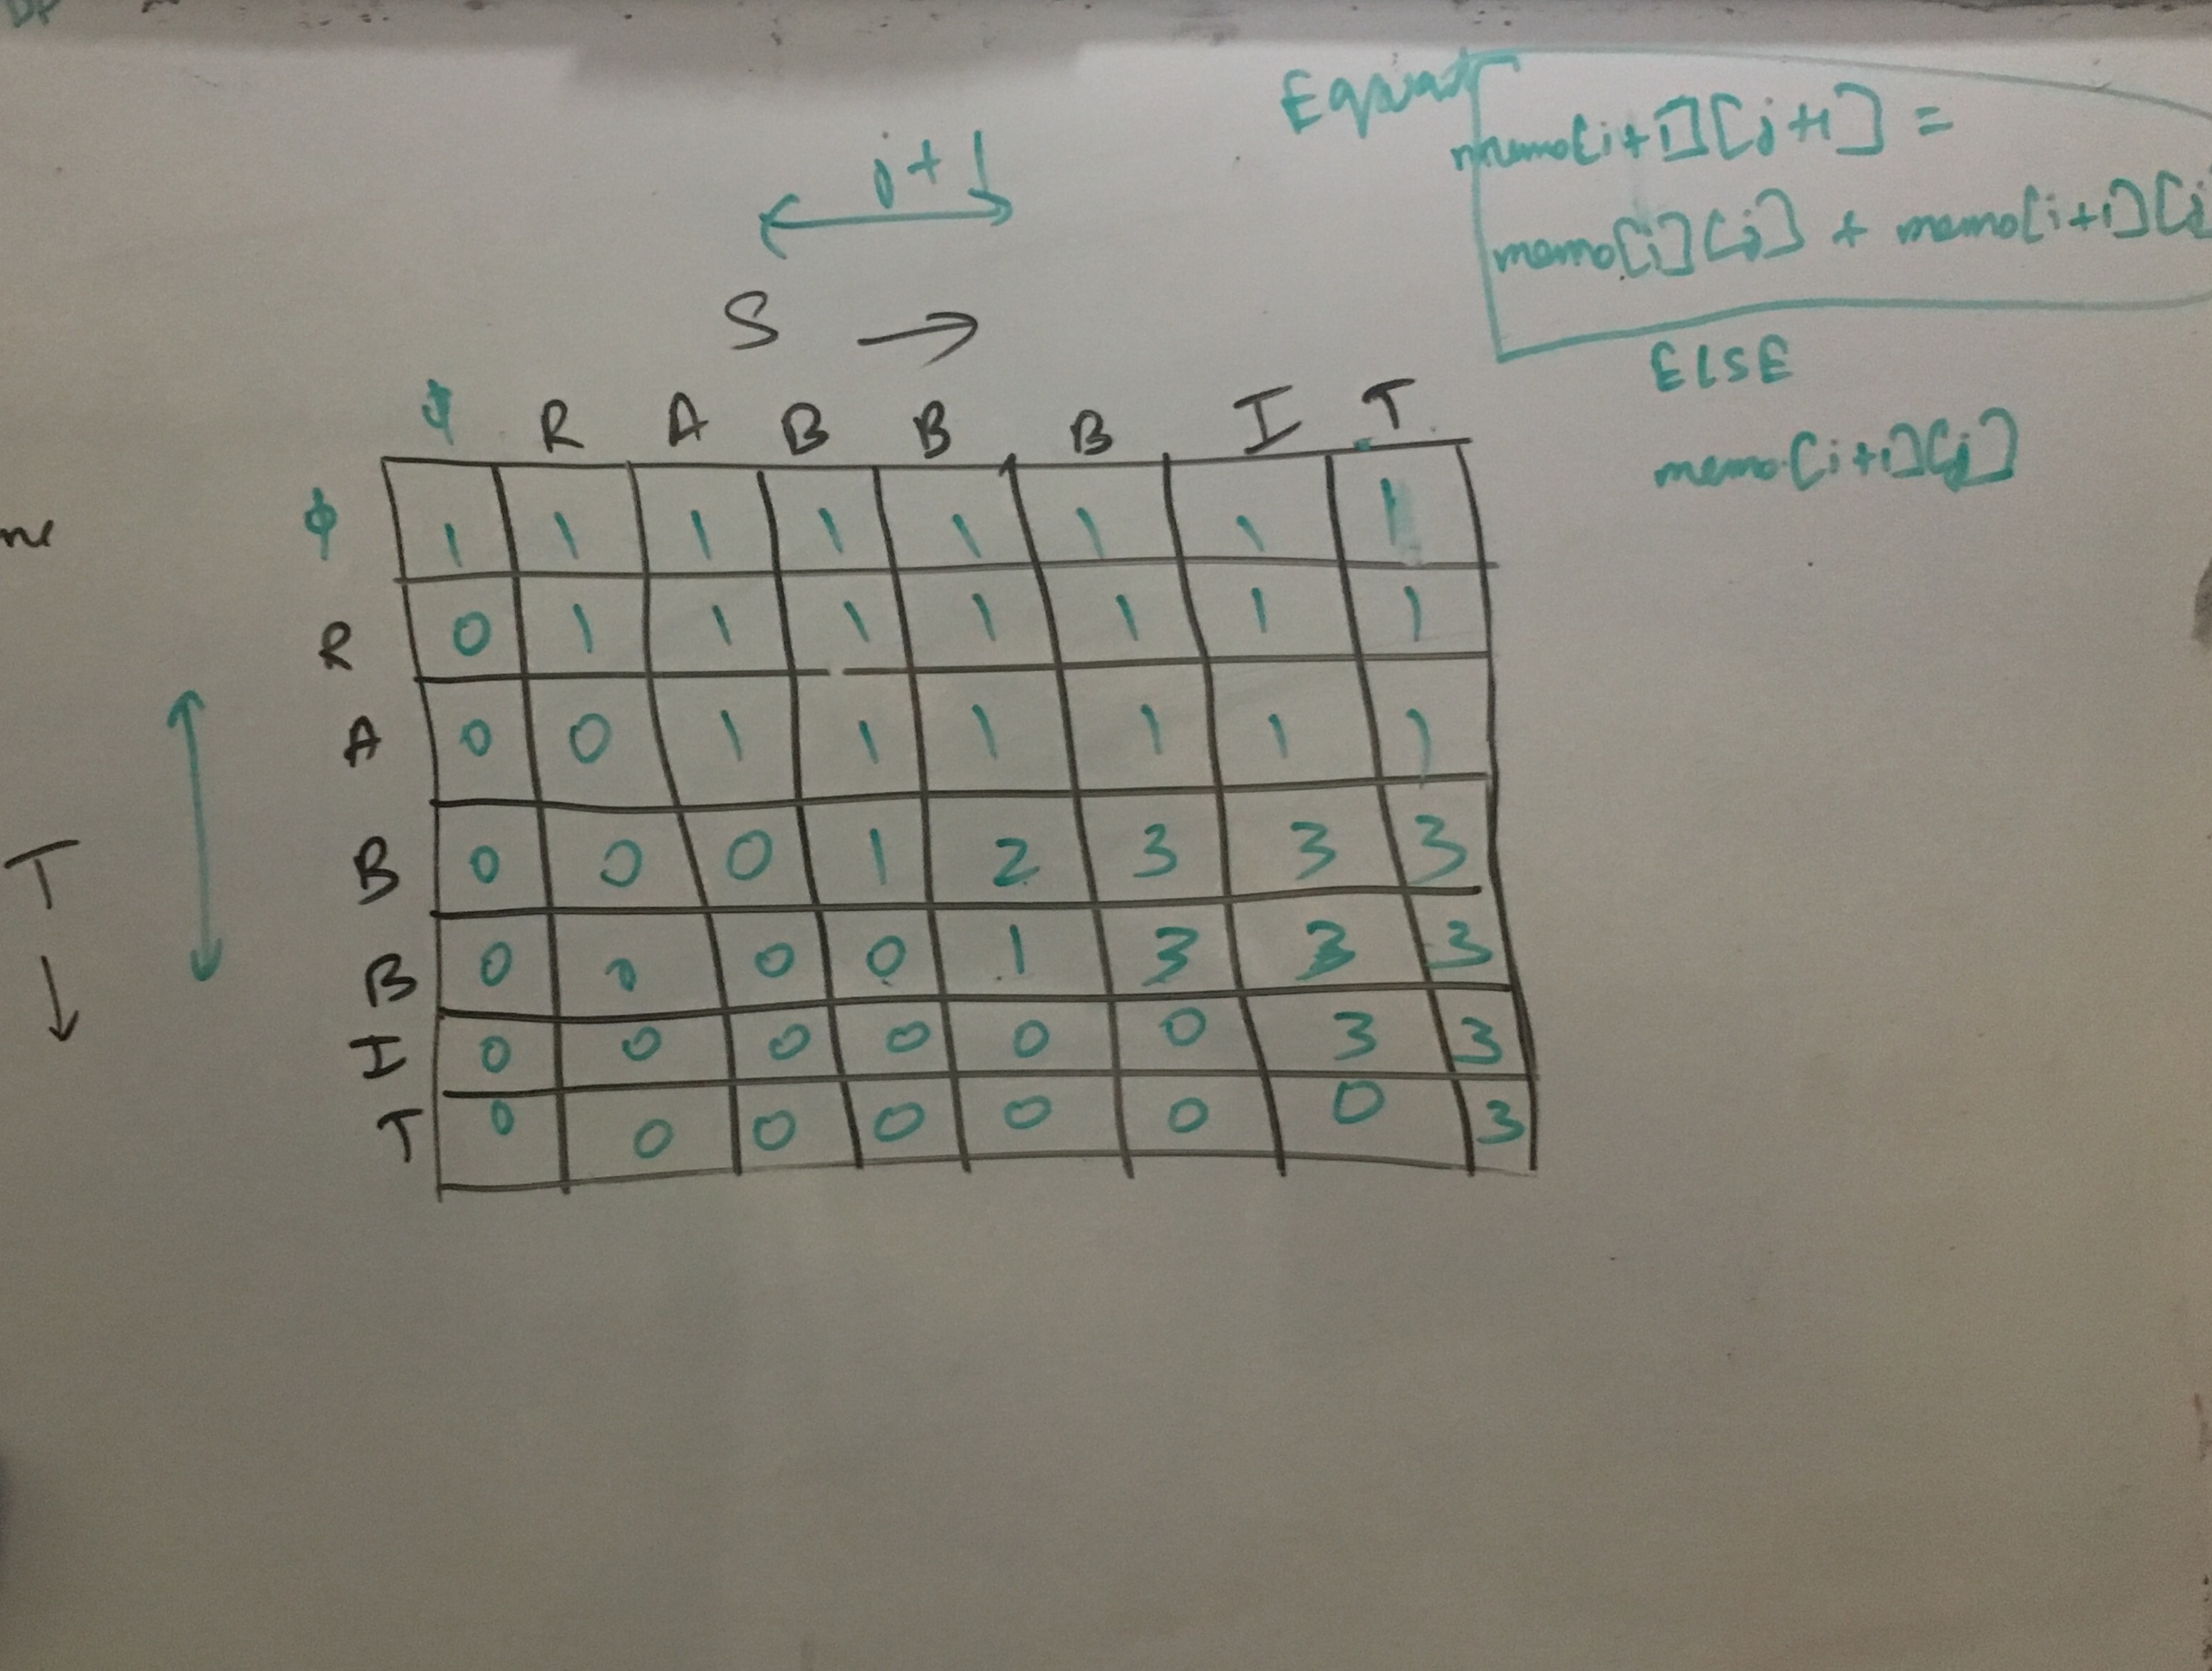 DP
Equal
memo[i+1][j+1] =
memo[i][j] + memo[i+1][j
ELSE
memo[i+1][j]
j+1
S →
ϕ R A B B B I T
ϕ 1 1 1 1 1 1 1 1
R 0 1 1 1 1 1 1 1
A 0 0 1 1 1 1 1 1
B 0 0 0 1 2 3 3 3
B 0 0 0 0 1 3 3 3
I 0 0 0 0 0 0 3 3
T 0 0 0 0 0 0 0 3
T
↓